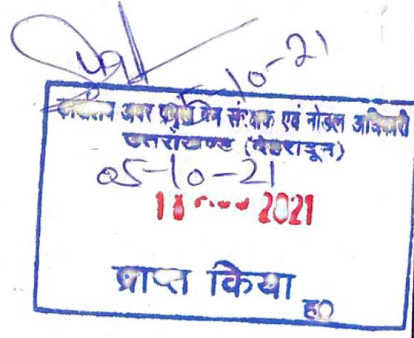 -10-21
कार्यालय अपर प्रमुख वन संरक्षक एवं नोडल अधिकारी
उत्तराखण्ड (देहरादून)
05-10-21
2021
प्राप्त किया
ह०